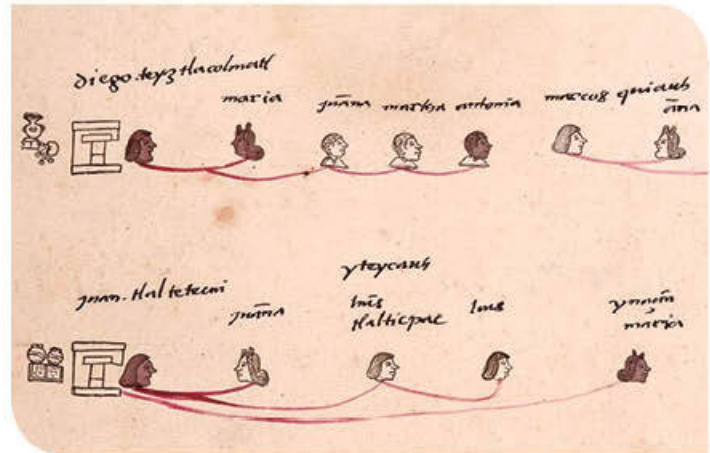 diego.teyztlacolmatl
maria juāna martha antonia marcos quiauh
āna
yteycauh
juan.tlaltetecui juāna luis luis
tlalticpac ynnan
maria